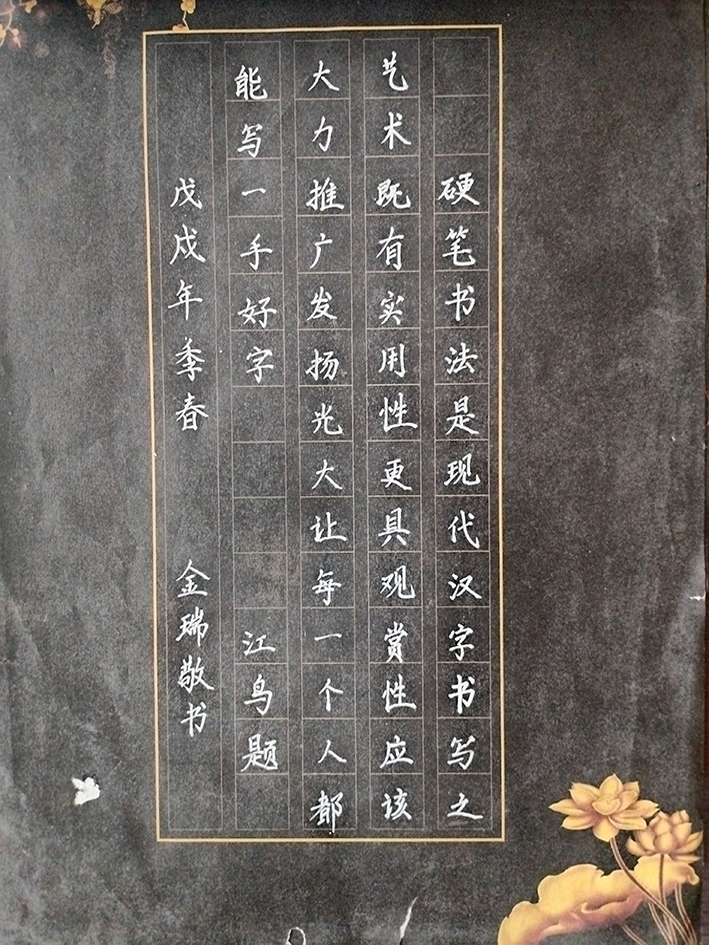 硬笔书法是现代汉字书写之
艺术既有实用性更具观赏性应该
大力推广发扬光大让每一个人都
能写一手好字 江鸟题
戊戌年季春 金瑞敬书